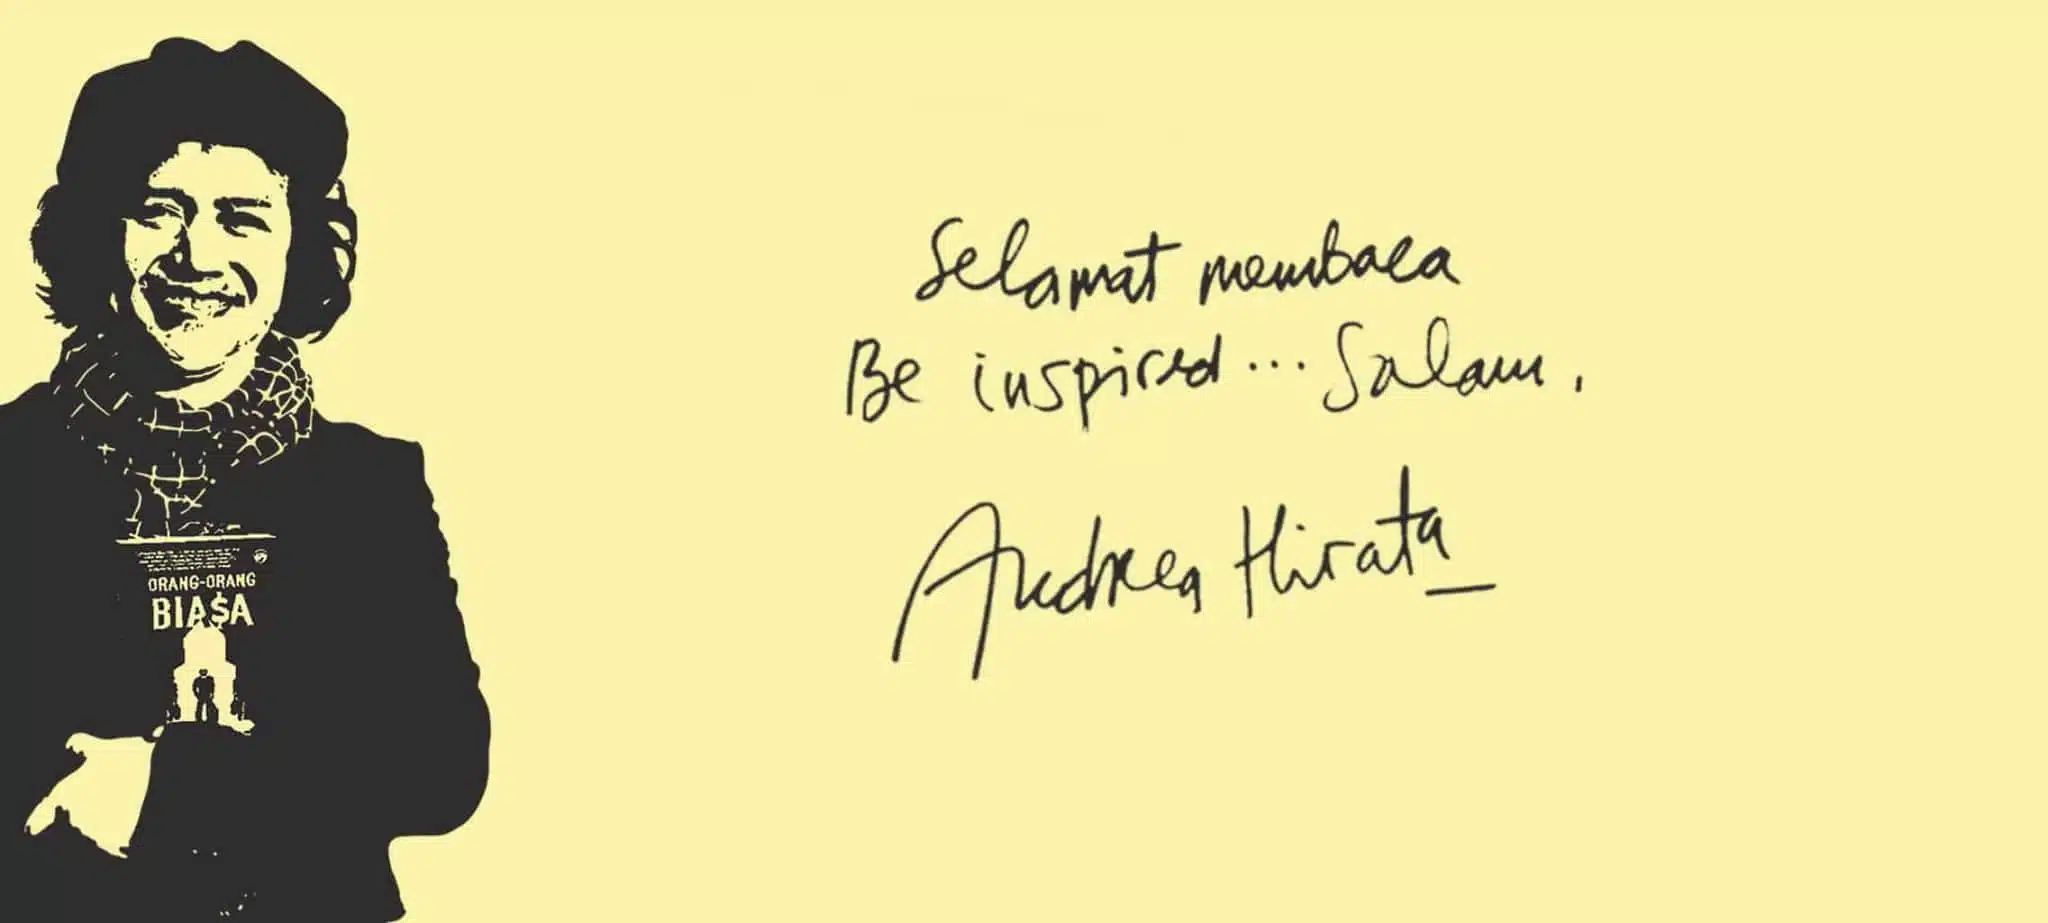 Selamat membaca
Be inspired... Salam.
Andrea Hirata
ORANG-ORANG
BIA$A